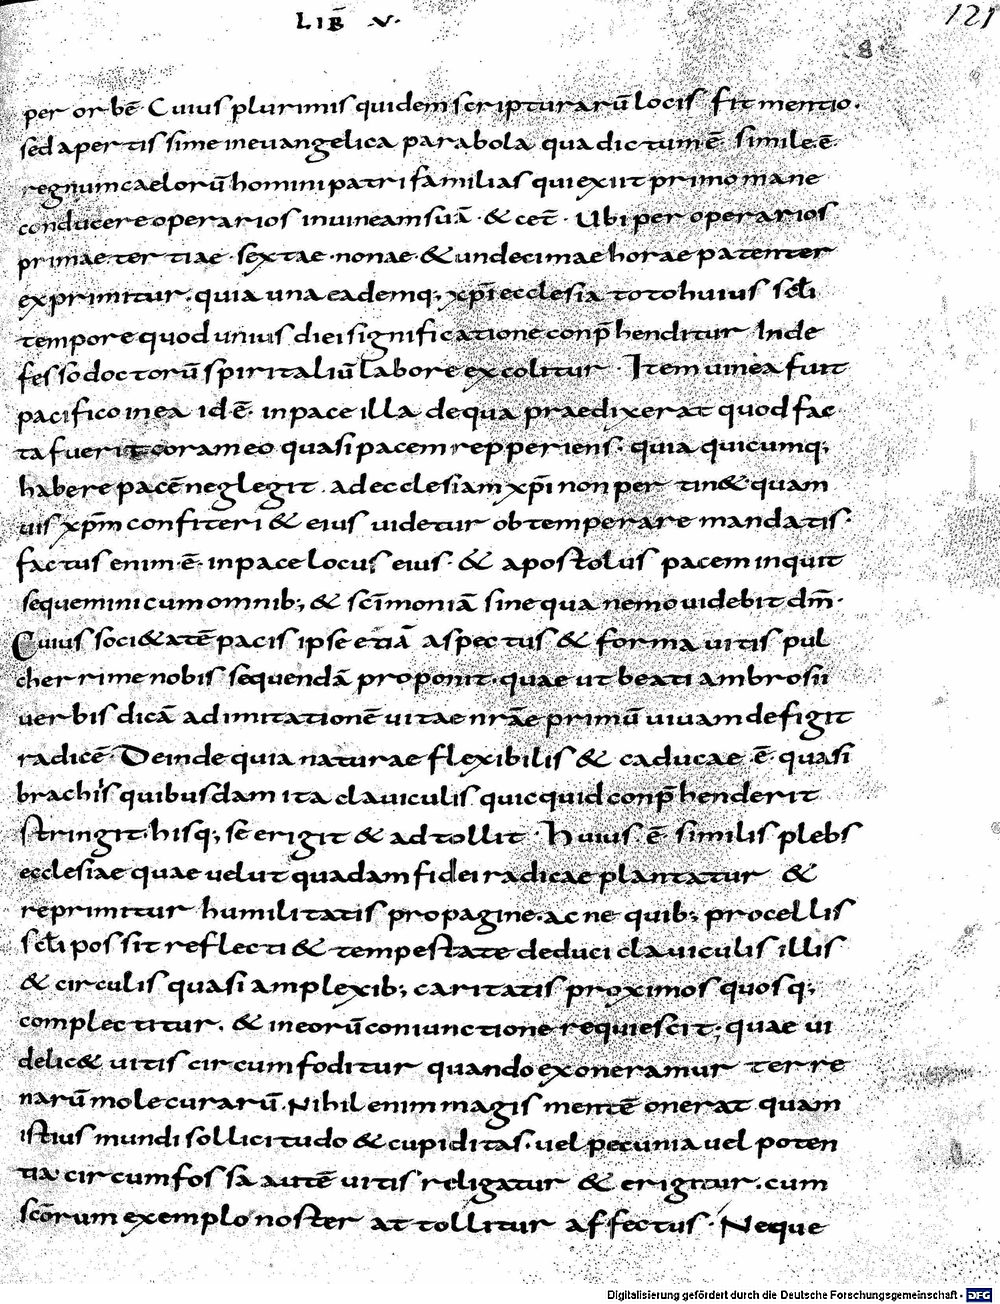 LIB̄ V.
121
8
per orbē Cuius plurimis quidem scripturarū locis fit mentio.
sed apertissime in euangelica parabola qua dictum ē simile ē
regnum caelorū homini patri familias qui exiit primo mane
conducere operarios in uineam suā · & cet̄ · Ubi per operarios
primae · tertiae · sextae · nonae · & undecimae horae patenter
exprimitur. quia una eademq; xp̄i ecclesia toto huius scłi
tempore quod unius diei significatione conp̄henditur Inde
fesso doctorū spiritaliū labore excolitur · Item uinea fuit
pacifico in ea id ē · in pace illa de qua praedixerat quod fac
ta fuerit coram eo quasi pacem repperiens · quia quicumq;
habere pacē neglegit ad ecclesiam xp̄i non pertin& quam
uis xp̄m confiteri & eius uidetur obtemperare mandatis·
factus enim ē · in pace locus eius · & apostolus pacem inquit
sequemini cum omnib; & sc̄imoniā sine qua nemo uidebit dm̄·
Cuius soci&atē pacis ipse etiā aspectus & forma uitis pul
cherrime nobis sequendā proponit · quae ut beati ambrosii
uerbis dicā ad imitationē uitae nr̄ae primū uiuam defigit
radicē · Deinde quia naturae flexibilis & caducae ē · quasi
brachiis quibusdam ita clauiculis quicquid conp̄henderit
stringit · hisq; se erigit & adtollit · Huius ē similis plebs
ecclesiae quae uelut quadam fidei radicae plantatur &
reprimitur humilitatis propagine · ac ne quib; procellis
scłi possit reflecti & tempestate deduci clauiculis illis
& circulis quasi amplexib; caritatis proximos quosq;
complectitur. & in eorū coniunctione requiescit; quae ui
delic& uitis circumfoditur quando exoneramur terre
narū mole curarū. Nihil enim magis mentē onerat quam
istius mundi sollicitudo & cupiditas · uel pecunia uel poten
tia circumfossa autē uitis religatur & erigitur. cum
scōrum exemplo noster attollitur affectus · Neque
Digitalisierung gefördert durch die Deutsche Forschungsgemeinschaft - DFG